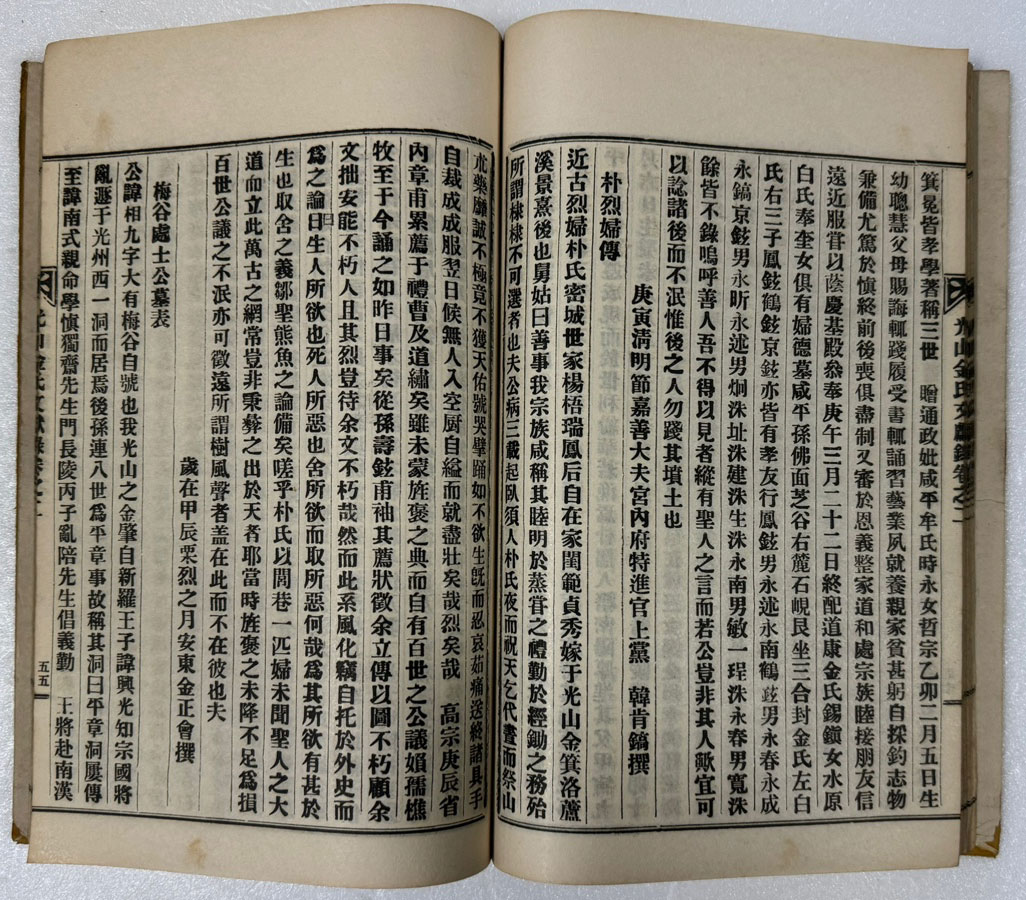 箕晃皆孝學著稱三世　贈通政妣咸平牟氏時永女哲宗乙卯二月五日生
幼聰慧父母賜誨輒踐履受書輒誦習藝業夙就養親家貧甚躬自採釣志物
兼備尤篤於愼終前後喪俱盡制又審於恩義整家道和處宗族睦接朋友信
遠近服甞以蔭慶基殿叅奉庚午三月二十二日終配道康金氏錫鎭女水原
白氏奉奎女俱有婦德墓咸平孫佛面芝谷右麓石峴艮坐三合封金氏左白
氏右三子鳳鉉鶴鉉京鉉亦皆有孝友行鳳鉉男永述永南鶴鉉男永春永成
永鎬京鉉男永昕永述男炯洙址洙建洙生洙永南男敏一珵洙永春男寬洙
餘皆不錄嗚呼善人吾不得以見者縱有聖人之言而若公豈非其人歟宜可
以諗諸後而不泯惟後之人勿踐其墳土也
庚寅淸明節嘉善大夫宮內府特進官上黨　韓肯鎬撰
朴烈婦傳
近古烈婦朴氏密城世家楊梧瑞鳳后自在家閨範貞秀嫁于光山金箕洛蘆
溪景熹後也舅姑曰善事我宗族咸稱其睦明於蒸甞之禮勤於經鋤之務殆
所謂棣棣不可選者也夫公病三載起臥須人朴氏夜而祝天乞代晝而祭山
光山金氏文獻錄卷之二
朮藥靡誠不極竟不獲天佑號哭擘踊如不欲生旣而忍哀茹痛送終諸具手
自裁成成服翌日候無人入空厨自縊而就盡壯矣哉烈矣哉　高宗庚辰省
內章甫累薦于禮曹及道繡矣雖未蒙旌褒之典而自有百世之公議嬾孺樵
牧至于今誦之如昨日事矣從孫壽鉉甫袖其薦狀徵余立傳以圖不朽顧余
文拙安能不朽人且其烈豈待余文不朽哉然而此系風化竊自托於外史而
爲之論曰生人所欲也死人所惡也舍所欲而取所惡何哉爲其所欲有甚於
生也取舍之義鄒聖熊魚之論備矣嗟乎朴氏以閭巷一匹婦未聞聖人之大
道而立此萬古之綱常豈非秉彝之出於天者耶當時旌褒之未降不足爲損
百世公議之不泯亦可徵遠所謂樹風聲者盖在此而不在彼也夫
歲在甲辰栗烈之月安東金正會撰
梅谷處士公墓表
公諱相九字大有梅谷自號也我光山之金肇自新羅王子諱興光知宗國將
亂遯于光州西一洞而居焉後孫連八世爲平章事故稱其洞曰平章洞屢傳
至諱南式親命學愼獨齋先生門長陵丙子亂陪先生倡義勤　王將赴南漢
五五